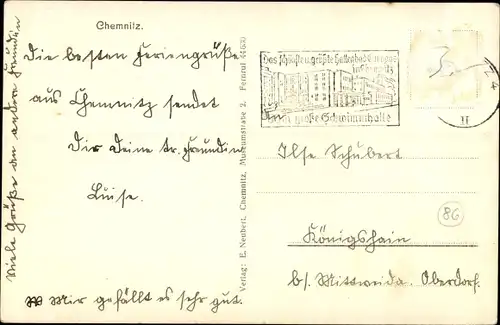 Chemnitz.
Die besten Feriengrüße
aus Chemnitz sendet
Dir Deine tr. Freundin
Luise.
Mir gefällt es sehr gut.
Viele Grüße an andere Freundin
Verlag: E. Neubert, Chemnitz, Museumstraße 2. Fernruf 44630
Das schönste u. größte Hallenbad Europas
in Chemnitz
große Schwimmhalle
Ilse Schubert
86
Königshain
b/. Mittweida. Oberdorf.